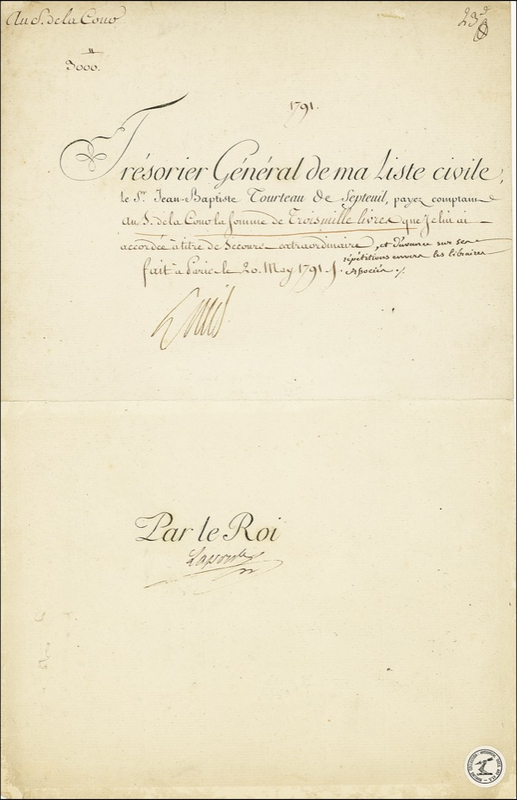 Au S. de la Couo
23
ll
3000.
1791.
Trésorier Général de ma Liste civile,
le Sr. Jean-Baptiste Tourteau De Septeuil, payez comptant
au S. de la Couo la somme de Trois mille livres que je lui ai
accordée à titre de Secours extraordinaire, et d'avance sur ses
répétitions envers les libraires
associés ./.
fait à Paris le 20. May 1791 ./.
Louis
Par le Roi
Laporte